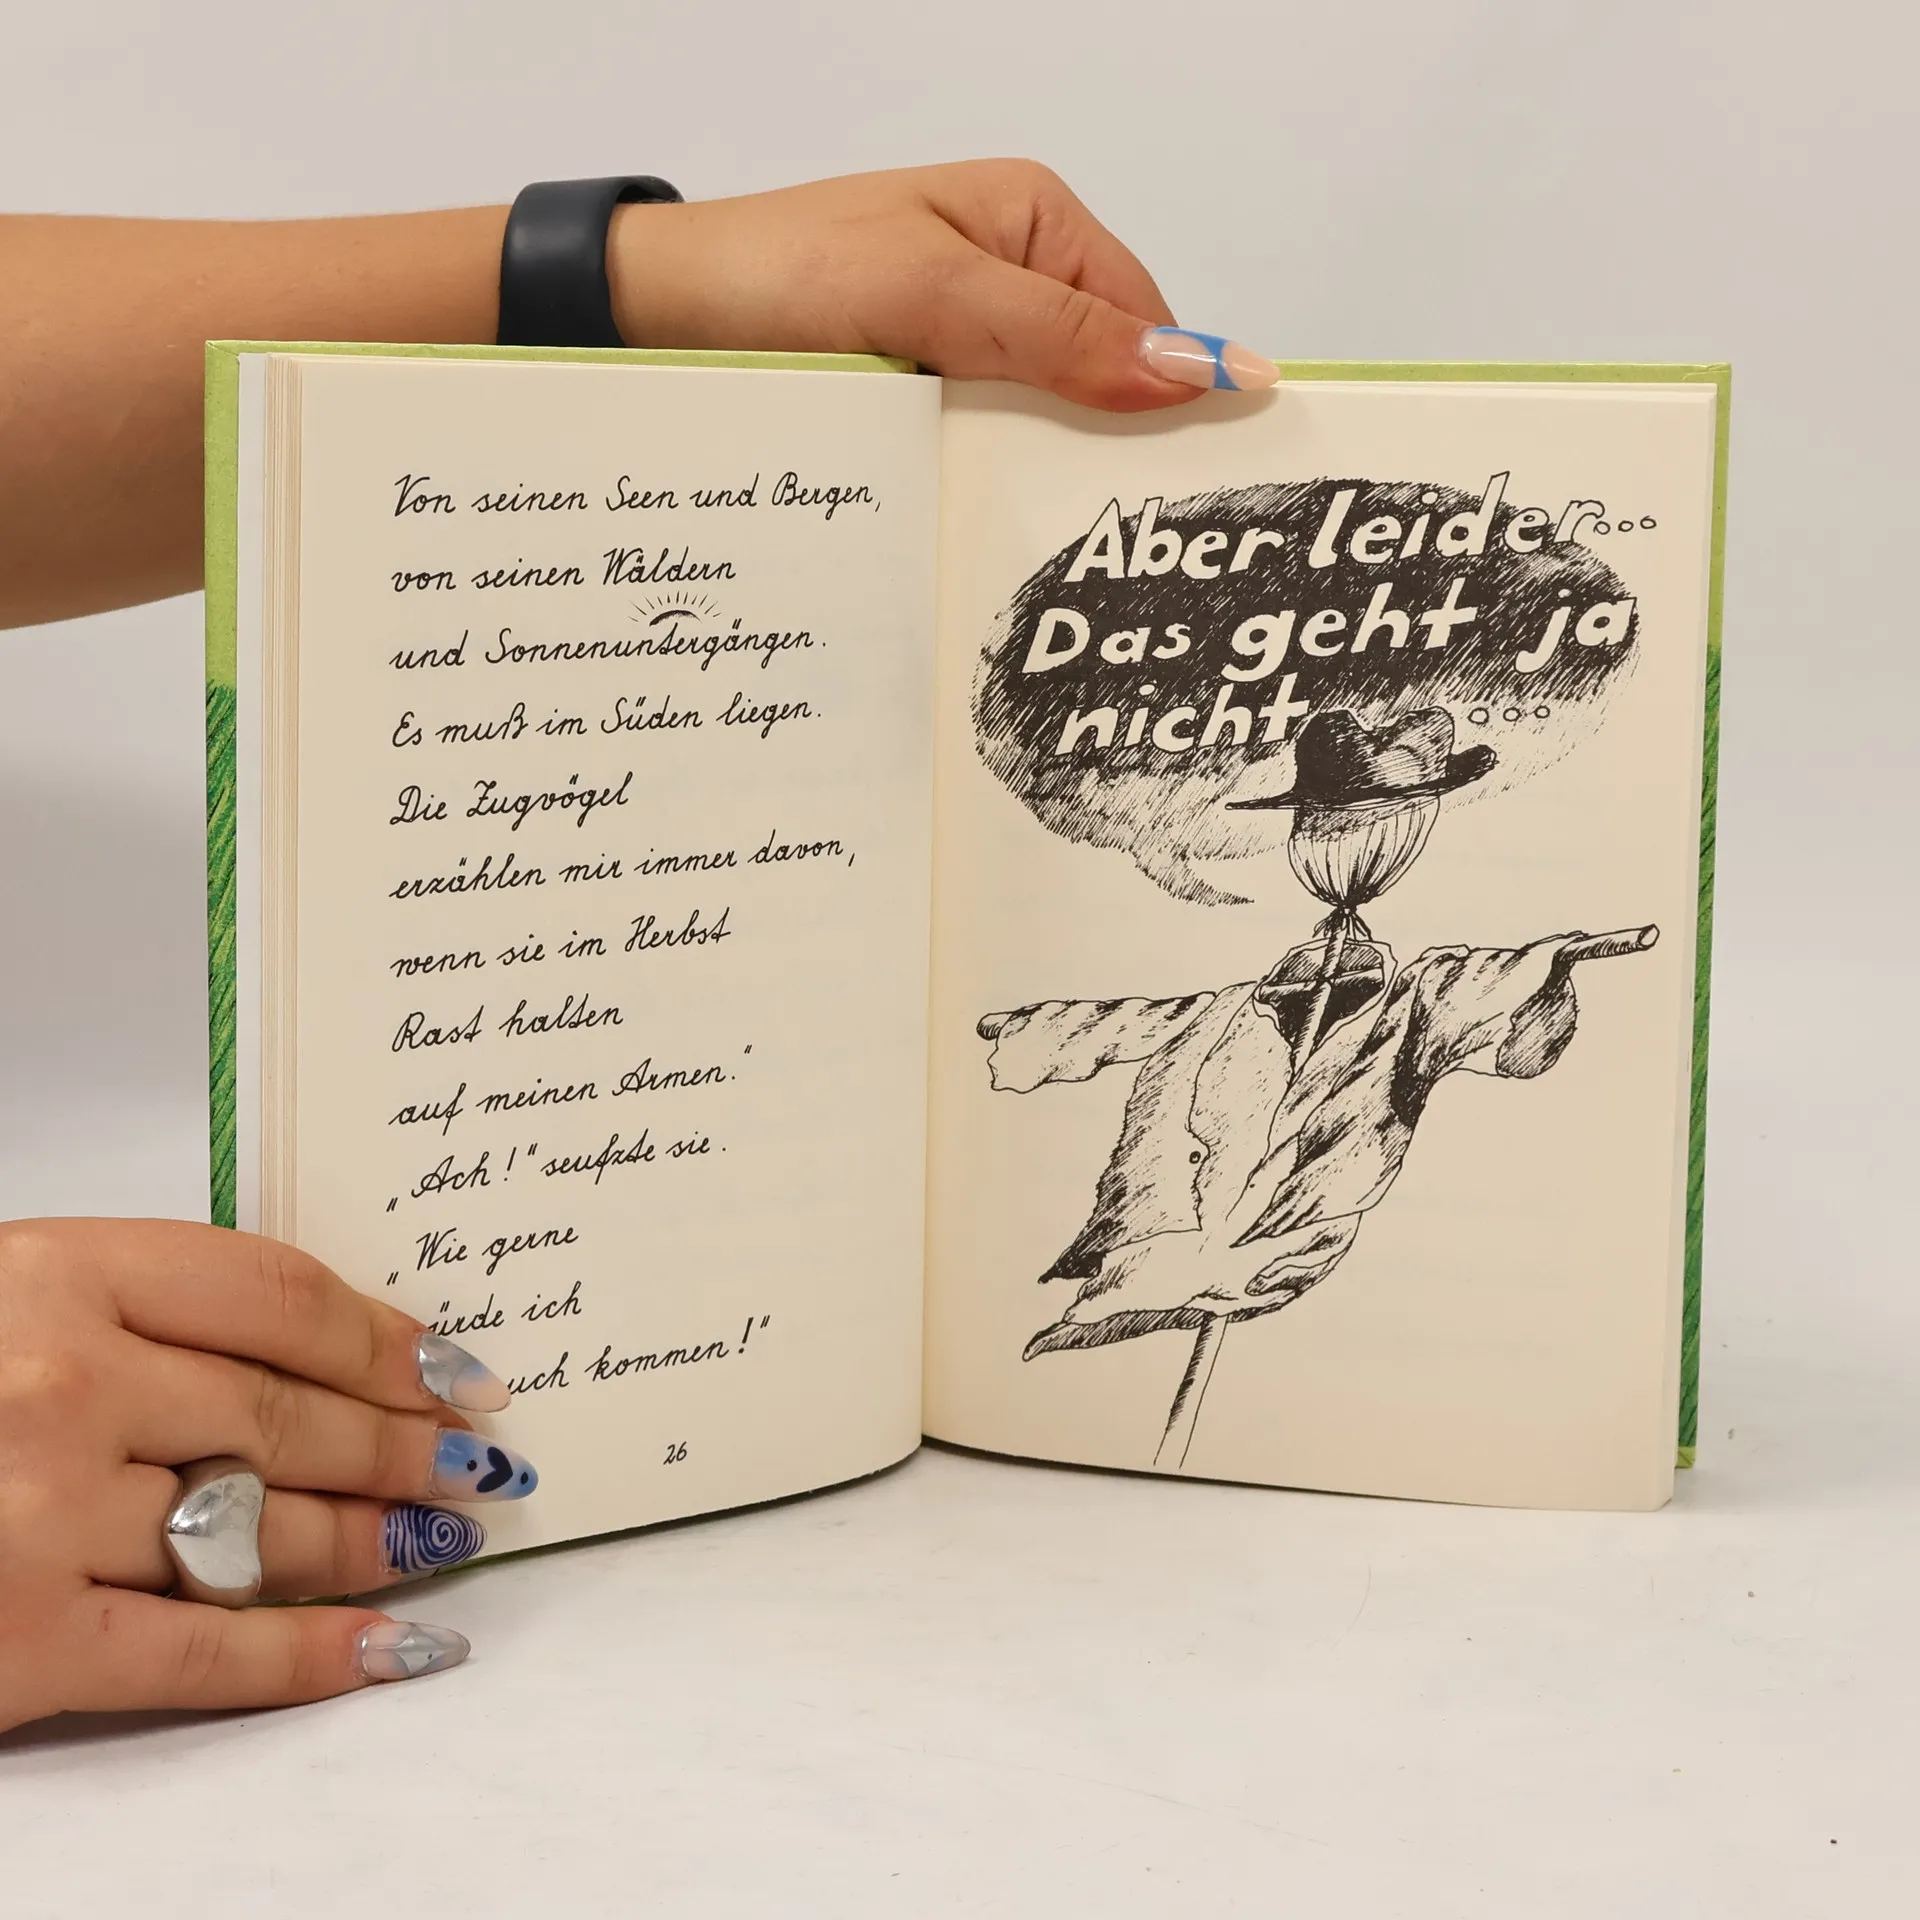 Von seinen Seen und Bergen,
von seinen Wäldern
und Sonnenuntergängen.
Es muß im Süden liegen.
Die Zugvögel
erzählen mir immer davon,
wenn sie im Herbst
Rast halten
auf meinen Armen."
„Ach!" seufzte sie.
„Wie gerne
ürde ich
uch kommen!"
26
Aber leider...
Das geht ja
nicht ...